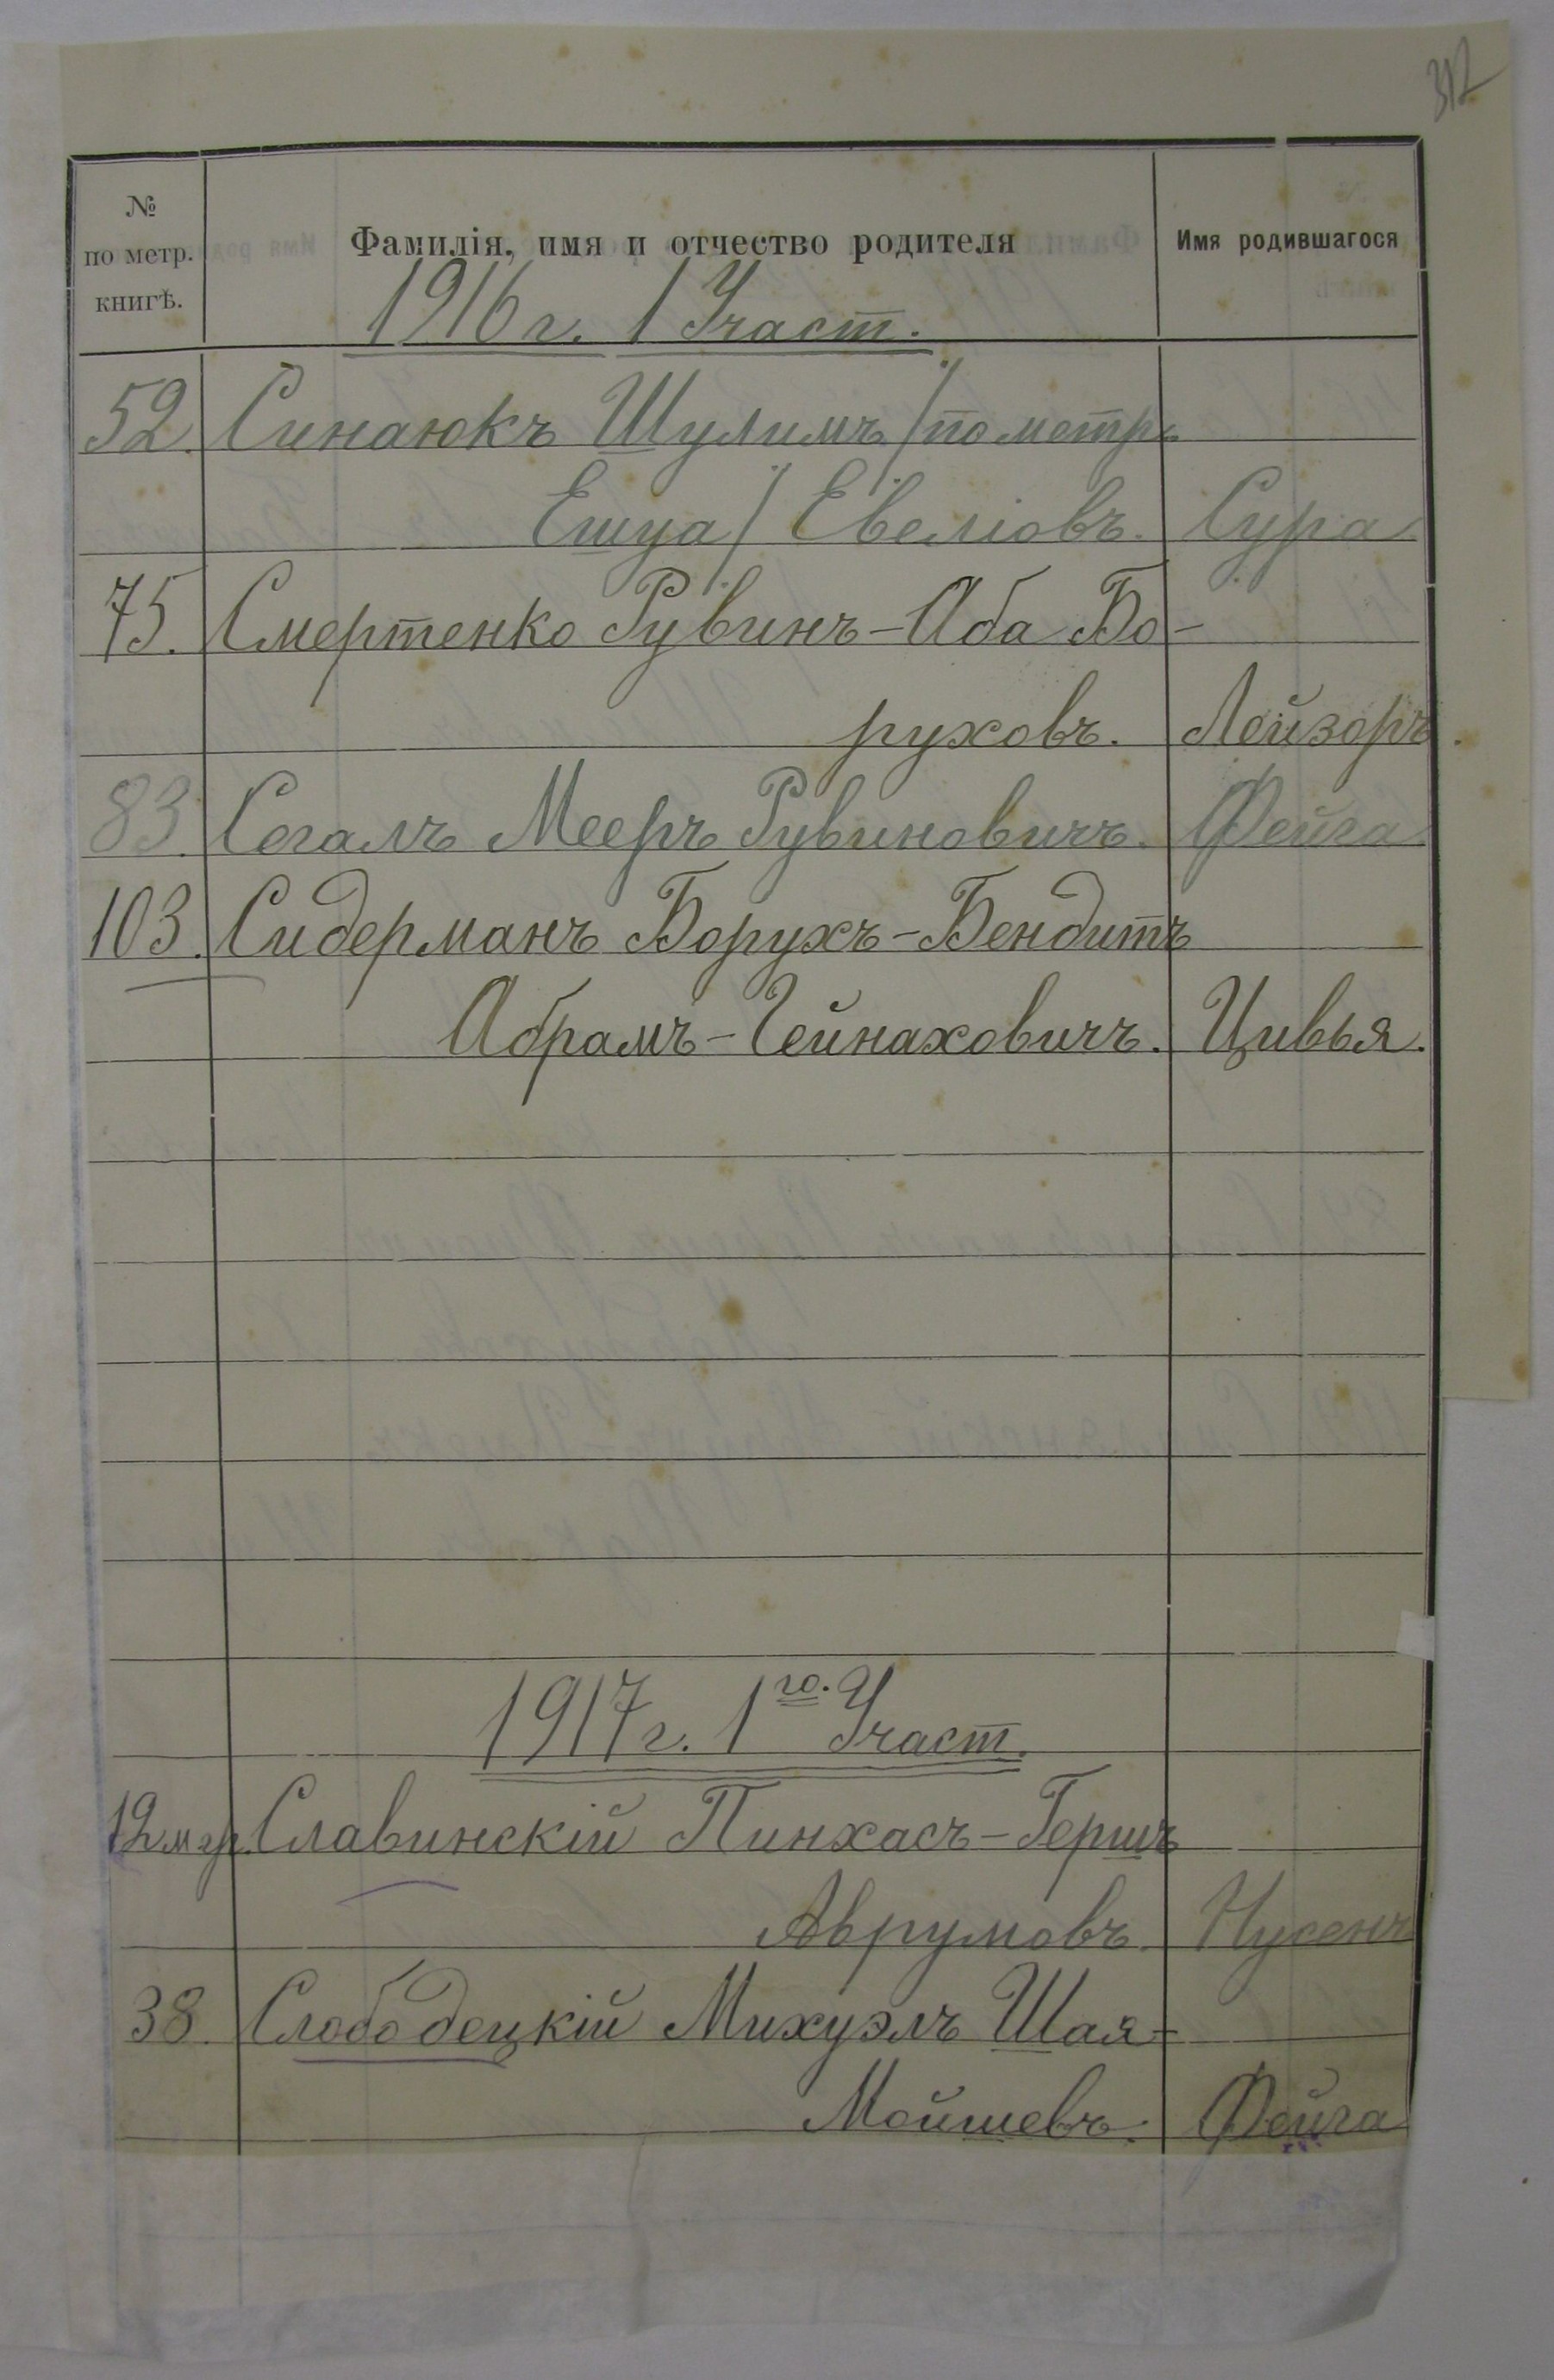 312
№ по метр. книгѣ.
Фамилія, имя и отчество родителя
Имя родившагося
1916 г. 1 Участ.
52. Синаюкъ Шулимъ /по метр.
Ешуа/ Евеліовъ. Сура
75. Смертенко Рувинъ-Аба Бо-
руховъ. Лейзоръ.
83. Сегалъ Мееръ Рувиновичъ. Фейга
103. Сидерманъ Борухъ-Бендитъ
Абрамъ-Гейнаховичъ. Цивья.
1917 г. 1го. Участ.
12 м гр. Славинскій Пинхасъ-Гершъ
Аврумовъ. Нусенъ
38. Слободецкій Михуэлъ Шая-
Мойшевъ. Фейга